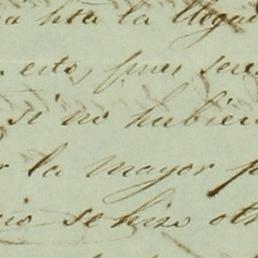 hta la llega
esto, pues ser
si no hubier
r la mayor p
se hizo otr